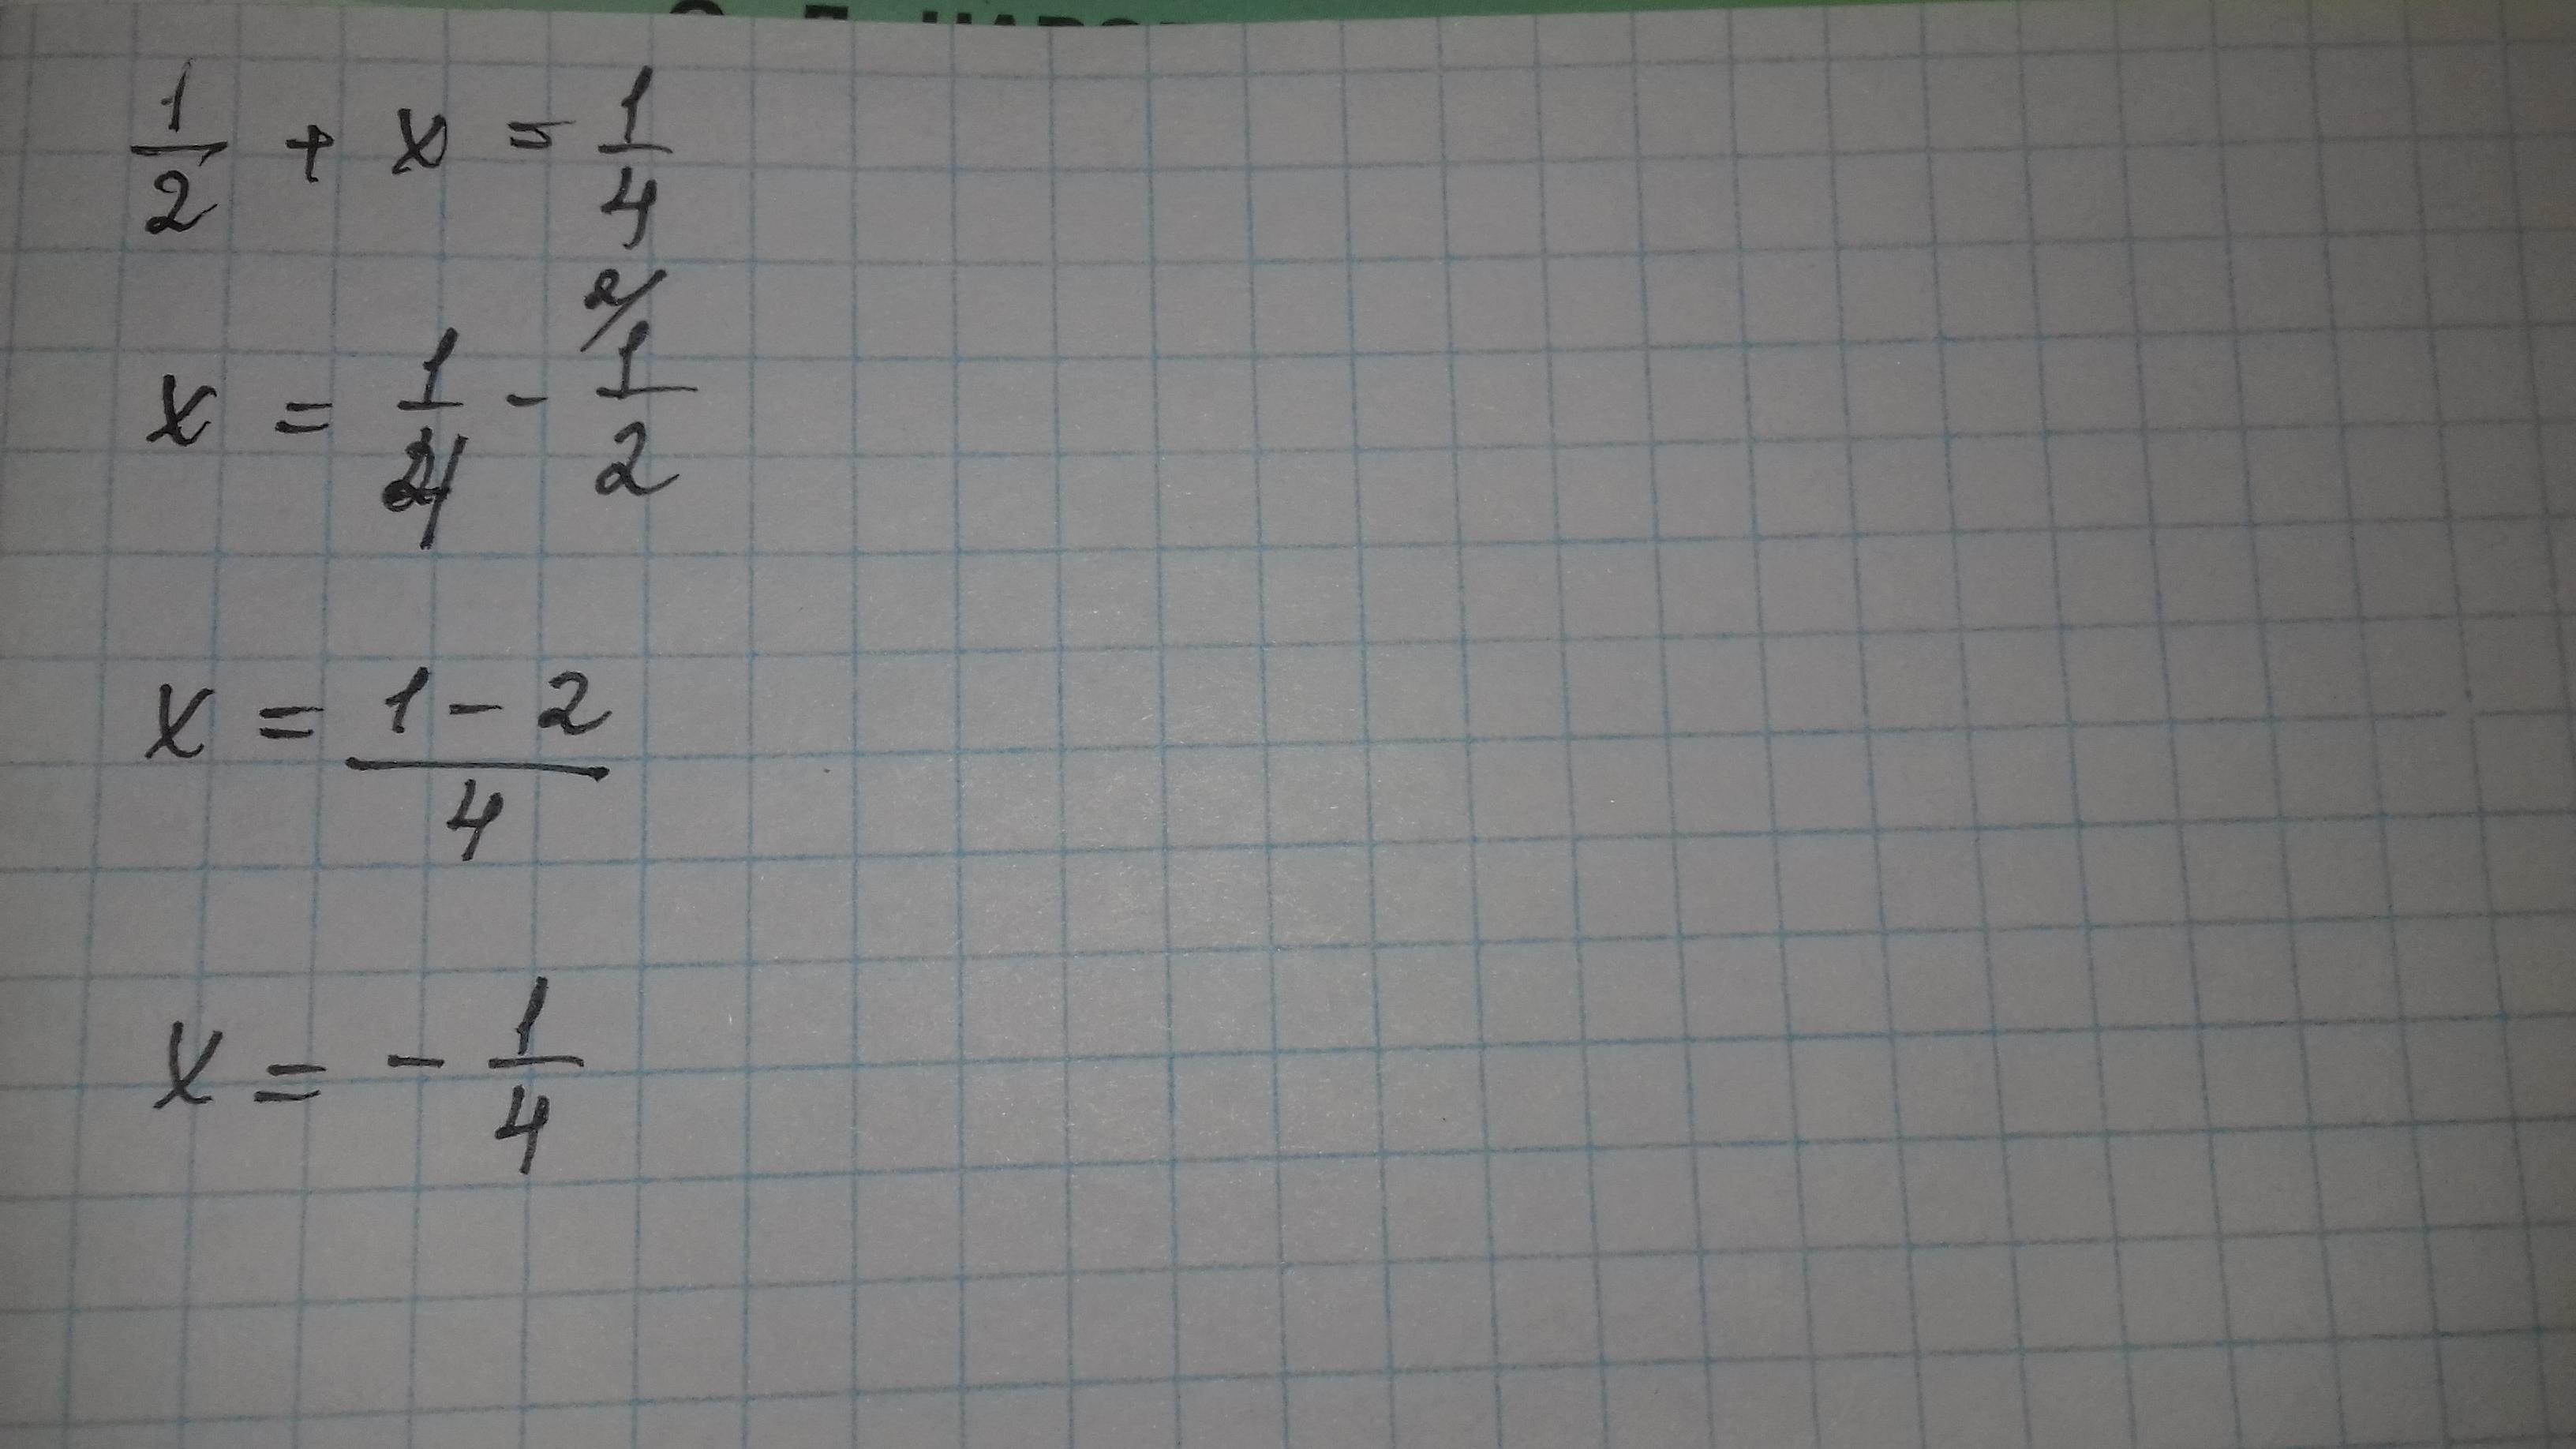 1/2 + x = 1/4
x = 1/4 - 2/ 1/2
x = (1 - 2)/4
x = - 1/4